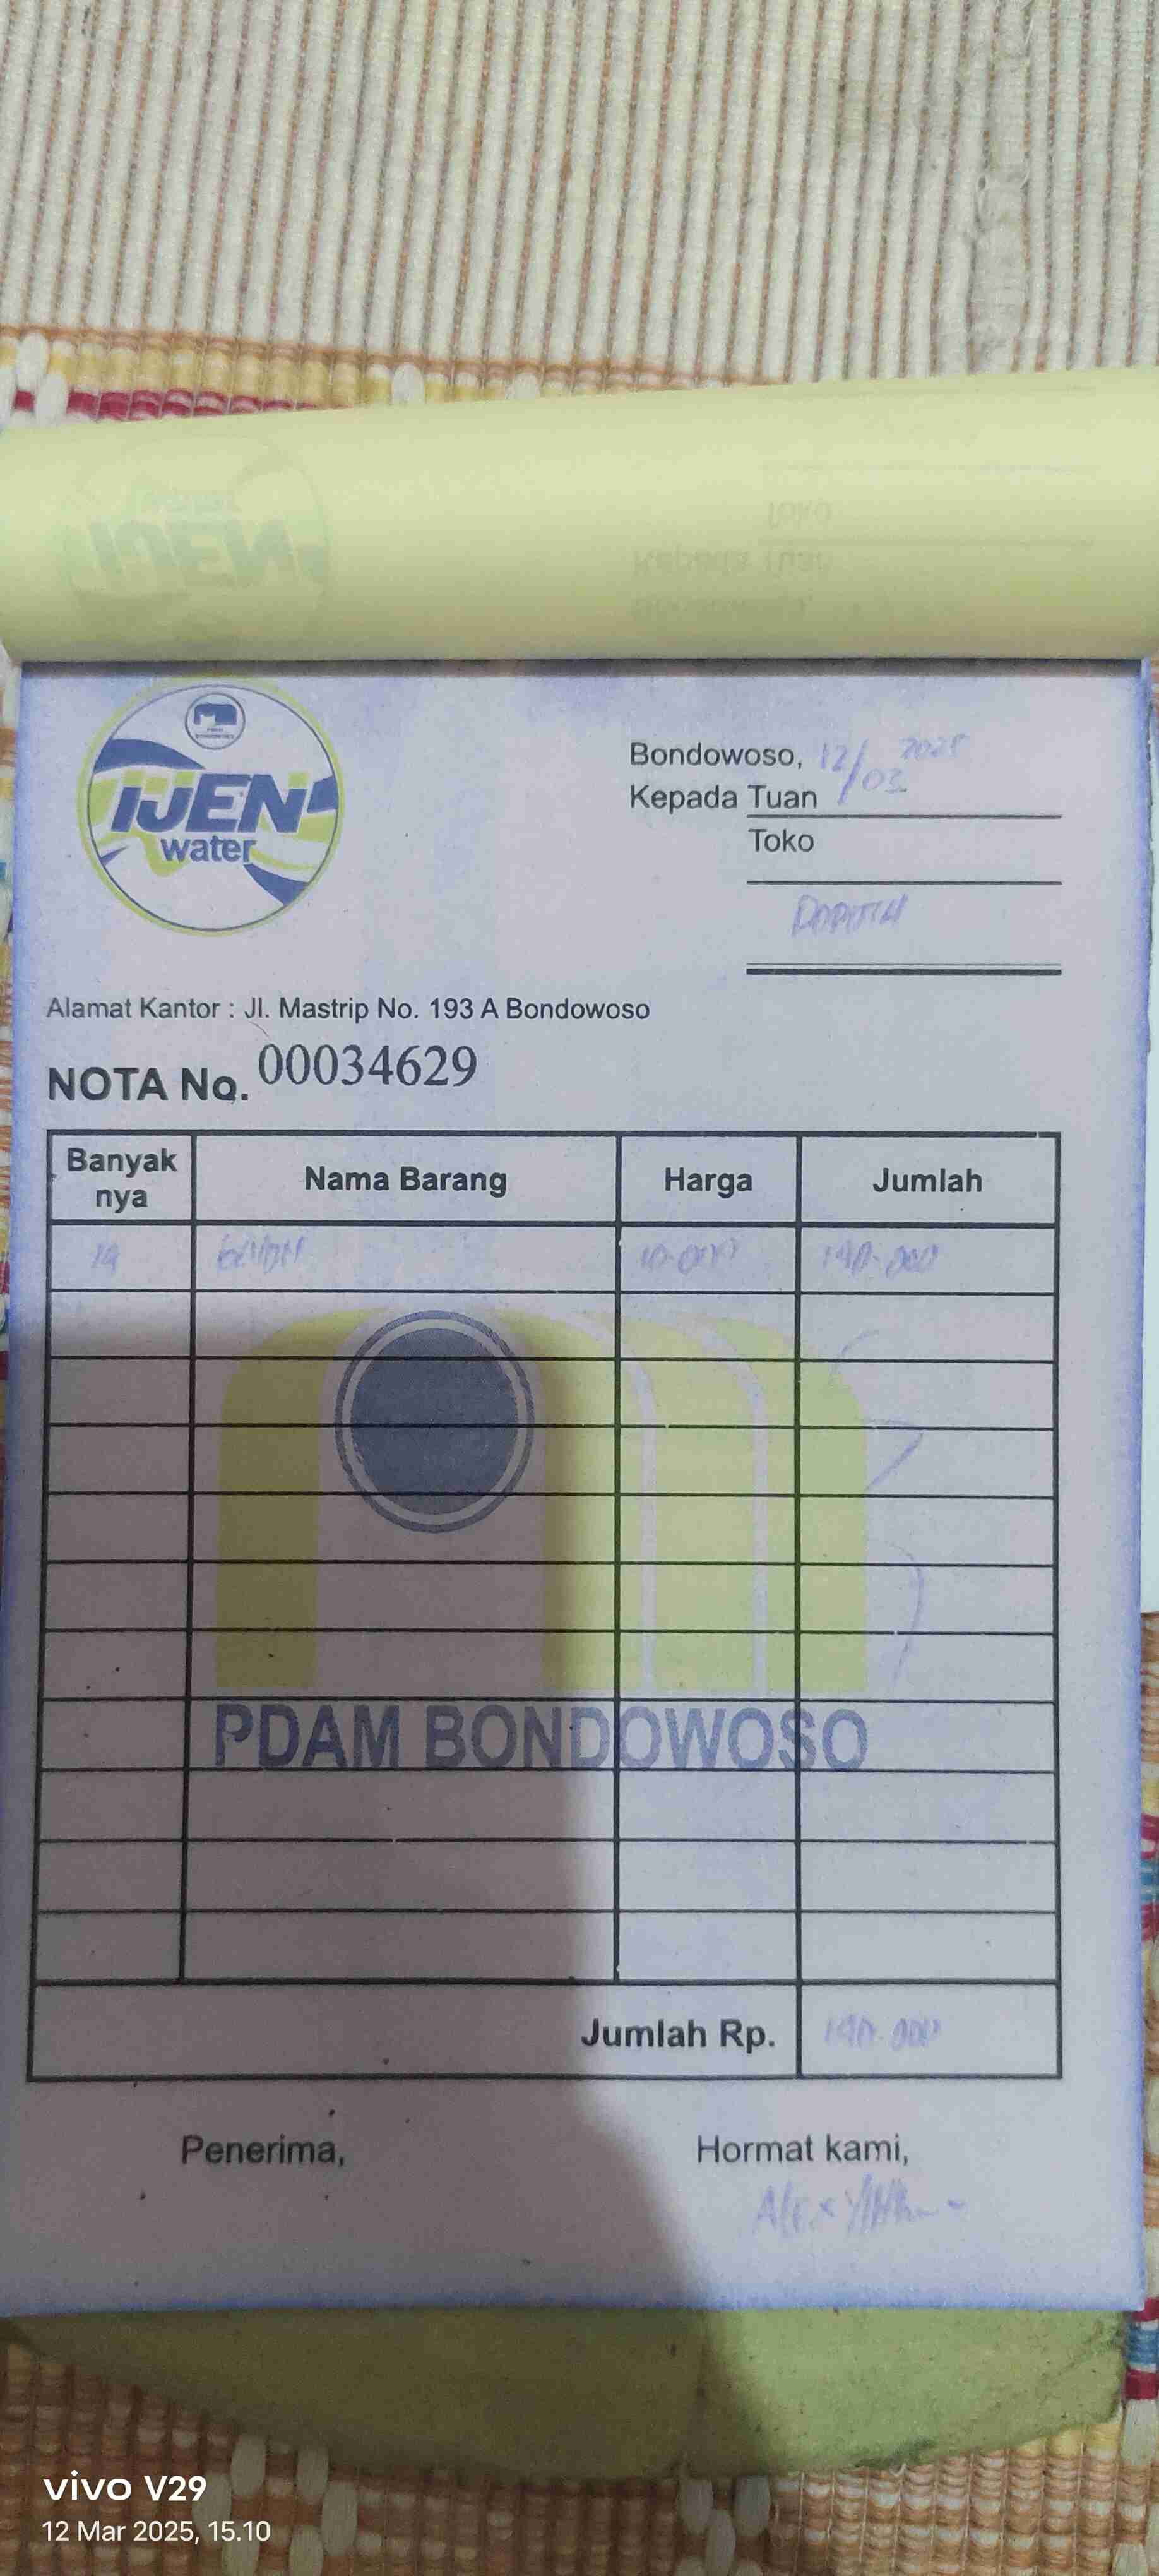 IJEN
water
Bondowoso, 12/03 2025
Kepada Tuan
Toko
Alamat Kantor : Jl. Mastrip No. 193 A Bondowoso
NOTA No. 00034629
Banyak nya Nama Barang Harga Jumlah
14 10.000 140.000
PDAM BONDOWOSO
Jumlah Rp. 140.000
Penerima, Hormat kami,
Alex
vivo V29
12 Mar 2025, 15.10